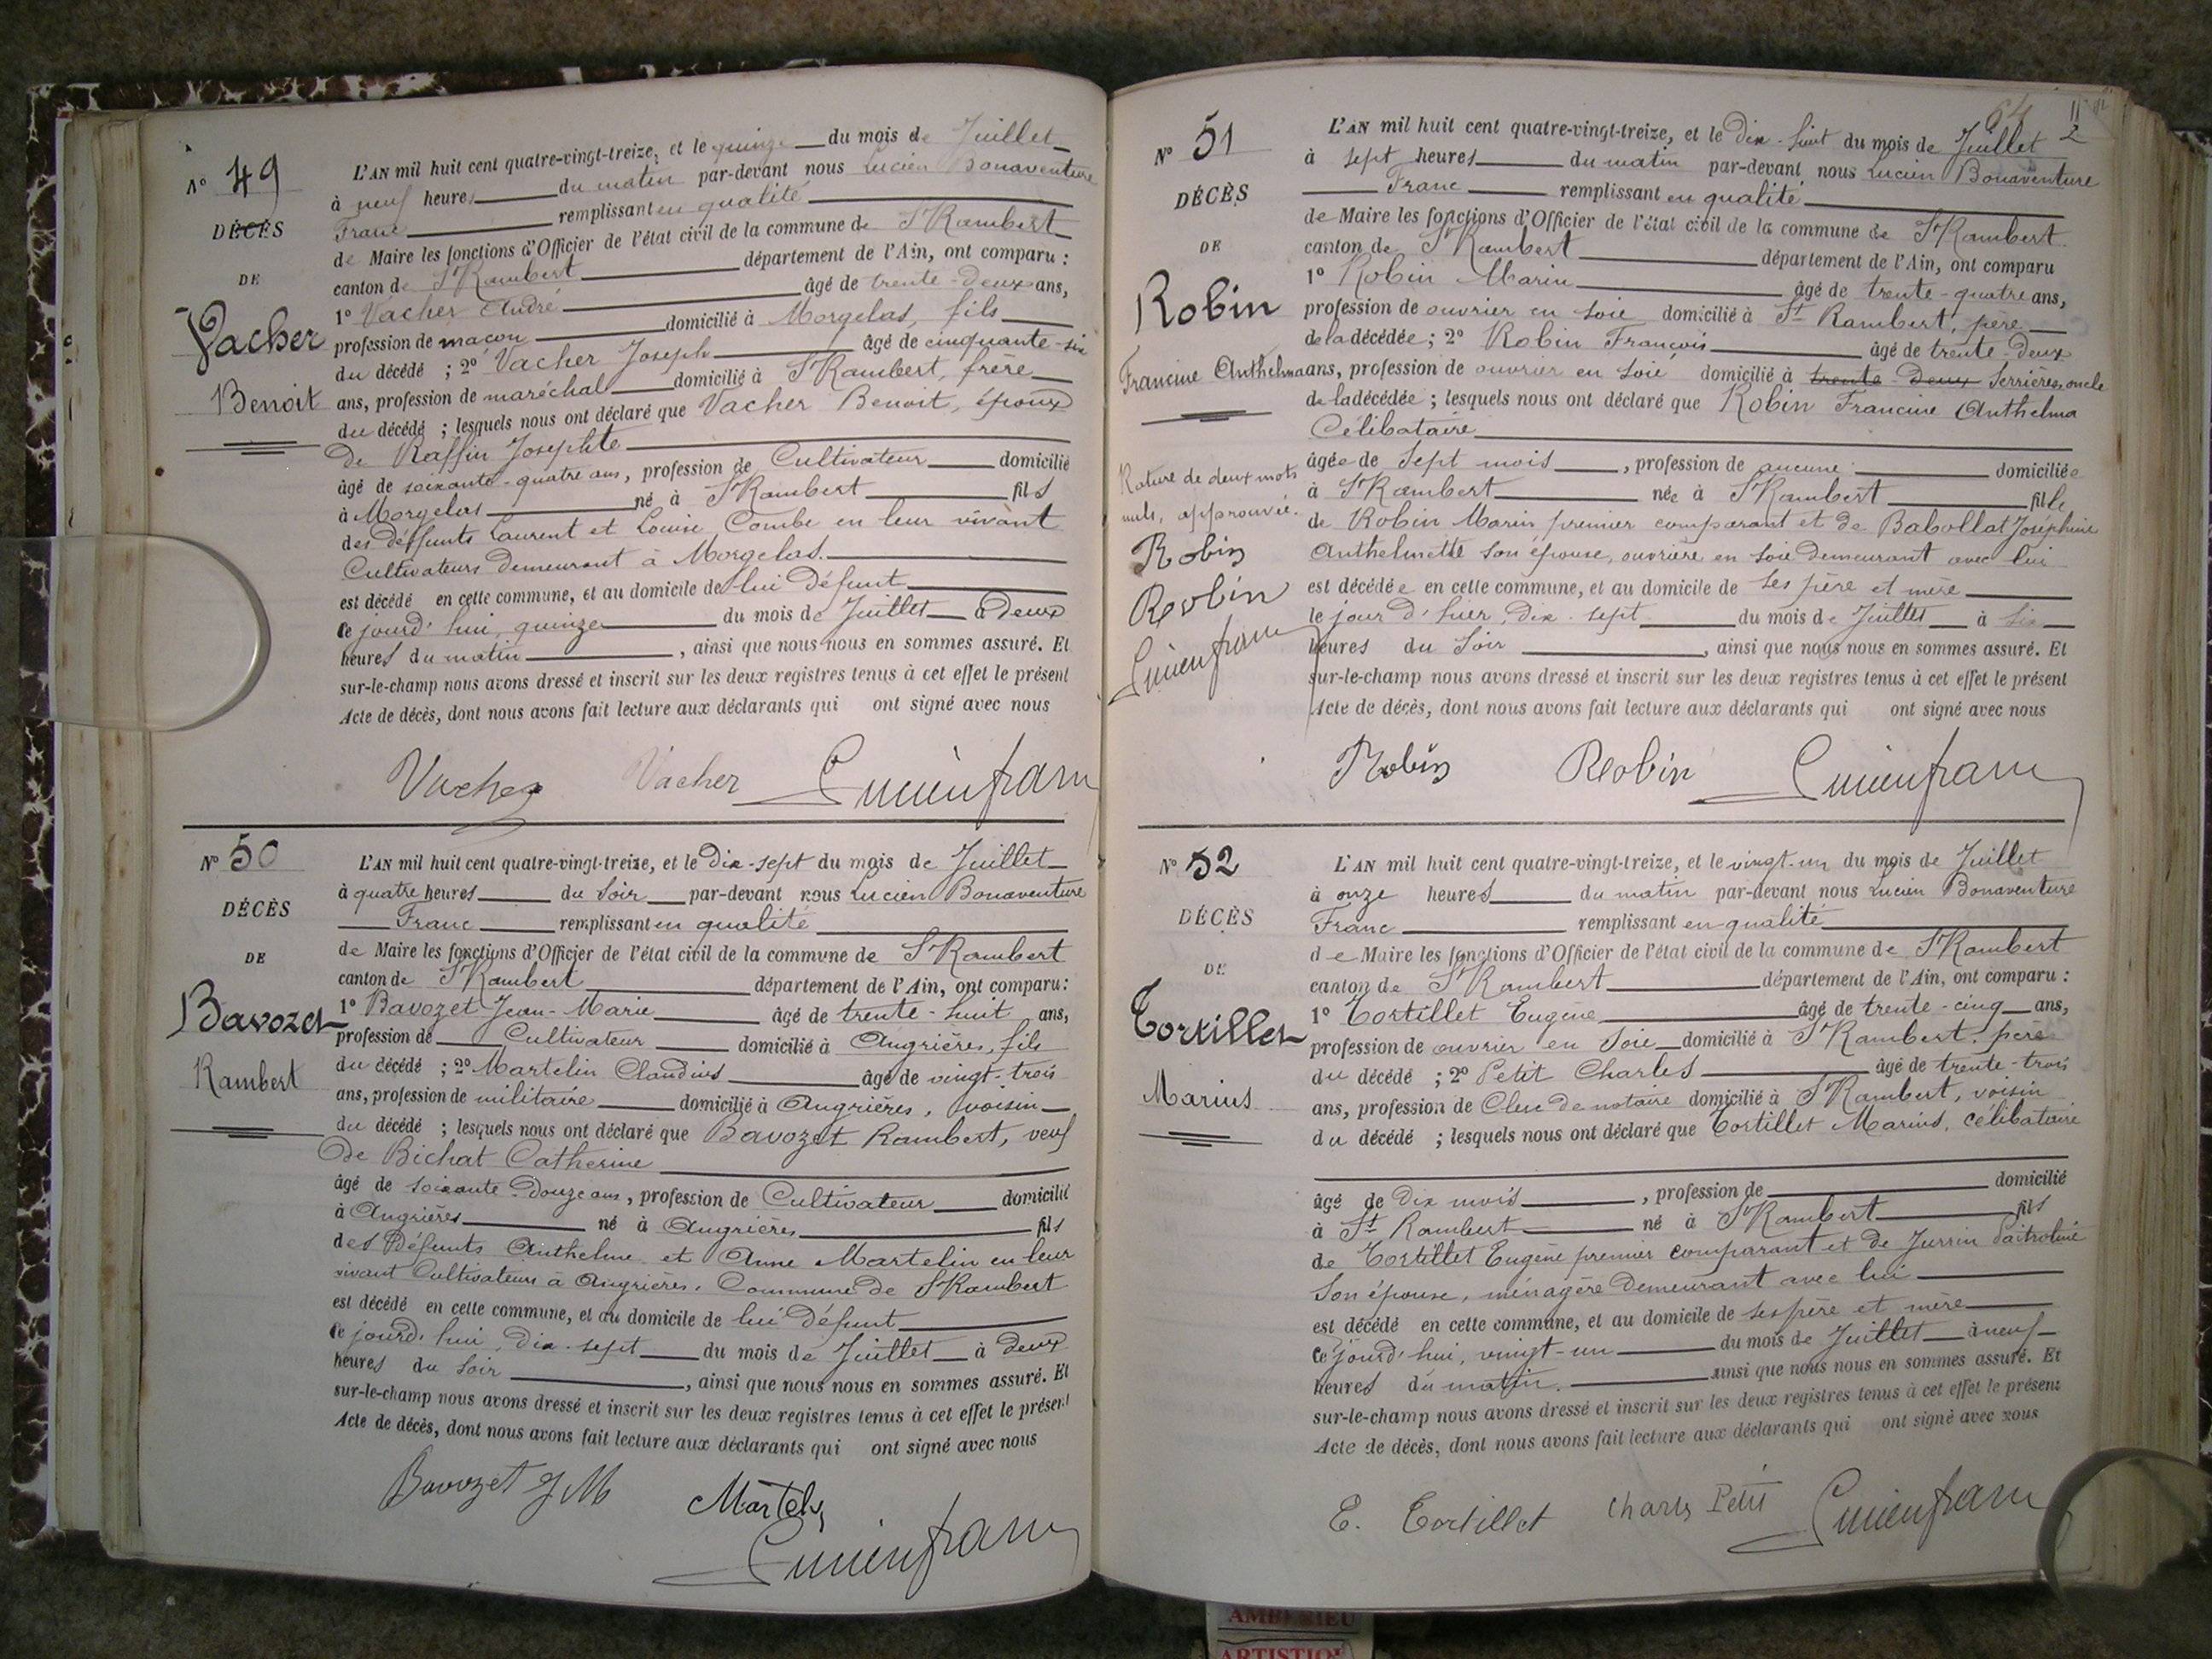 N° 49
DÉCÈS
DE
Vacher
Benoit
L'AN mil huit cent quatre-vingt-treize, et le quinze du mois de Juillet
à neuf heures du matin par-devant nous Lucien Bonaventure
Franc remplissant en qualité
de Maire les fonctions d'Officier de l'état civil de la commune de St Rambert
canton de St Rambert département de l'Ain, ont comparu :
1° Vacher André âgé de trente-deux ans,
profession de maçon domicilié à Morgelas, fils
du décédé ; 2° Vacher Joseph âgé de cinquante-six
ans, profession de maréchal domicilié à St Rambert, frère
du décédé ; lesquels nous ont déclaré que Vacher Benoit, époux
de Raffin Josephte
âgé de soixante-quatre ans, profession de Cultivateur domicilié
à Morgelas né à St Rambert fils
des défunts Laurent et Louise Combe en leur vivant
Cultivateurs demeurant à Morgelas.
est décédé en cette commune, et au domicile de lui défunt
ce jourd'hui, quinze du mois de Juillet à deux
heures du matin, ainsi que nous nous en sommes assuré. Et
sur-le-champ nous avons dressé et inscrit sur les deux registres tenus à cet effet le présent
Acte de décès, dont nous avons fait lecture aux déclarants qui ont signé avec nous
Vacher Vacher Lucien franc
N° 50
DÉCÈS
DE
Bavozet
Rambert
L'AN mil huit cent quatre-vingt-treize, et le dix-sept du mois de Juillet
à quatre heures du soir par-devant nous Lucien Bonaventure
Franc remplissant en qualité
de Maire les fonctions d'Officier de l'état civil de la commune de St Rambert
canton de St Rambert département de l'Ain, ont comparu :
1° Bavozet Jean-Marie âgé de trente-huit ans,
profession de Cultivateur domicilié à Angrières, fils
du décédé ; 2° Martelin Claudius âgé de vingt-trois
ans, profession de militaire domicilié à Angrières, voisin
du décédé ; lesquels nous ont déclaré que Bavozet Rambert, veuf
de Bichat Catherine
âgé de soixante-douze ans, profession de Cultivateur domicilié
à Angrières né à Angrières fils
des défunts Anthelme et Anne Martelin en leur
vivant Cultivateurs à Angrières, Commune de St Rambert
est décédé en cette commune, et au domicile de lui défunt
ce jourd'hui, dix-sept du mois de Juillet à deux
heures du soir, ainsi que nous nous en sommes assuré. Et
sur-le-champ nous avons dressé et inscrit sur les deux registres tenus à cet effet le présent
Acte de décès, dont nous avons fait lecture aux déclarants qui ont signé avec nous
Bavozet J M Martelin
Lucien franc
64
N° 51
DÉCÈS
DE
Robin
Francine Anthelma
Rature de deux mots
nuls, approuvée.
Robin
Robin
Lucien franc
L'AN mil huit cent quatre-vingt-treize, et le dix-huit du mois de Juillet
à sept heures du matin par-devant nous Lucien Bonaventure
Franc remplissant en qualité
de Maire les fonctions d'Officier de l'état civil de la commune de St Rambert
canton de St Rambert département de l'Ain, ont comparu
1° Robin Marin âgé de trente-quatre ans,
profession de ouvrier en soie domicilié à St Rambert, père
de la décédée ; 2° Robin François âgé de trente-deux
ans, profession de ouvrier en soie domicilié à trente-deux Serrières, oncle
de la décédée ; lesquels nous ont déclaré que Robin Francine Anthelma
Célibataire
âgée de Sept mois, profession de aucune domiciliée
à St Rambert née à St Rambert fille
de Robin Marin premier comparant et de Babollat Joséphine
Anthelmette son épouse, ouvrière en soie demeurant avec lui
est décédée en cette commune, et au domicile de ses père et mère
le jour d'hier, dix-sept du mois de Juillet à six
heures du soir, ainsi que nous nous en sommes assuré. Et
sur-le-champ nous avons dressé et inscrit sur les deux registres tenus à cet effet le présent
Acte de décès, dont nous avons fait lecture aux déclarants qui ont signé avec nous
Robin Robin Lucien franc
N° 52
DÉCÈS
DE
Tortillet
Marius
L'AN mil huit cent quatre-vingt-treize, et le vingt-un du mois de Juillet
à onze heures du matin par-devant nous Lucien Bonaventure
Franc remplissant en qualité
de Maire les fonctions d'Officier de l'état civil de la commune de St Rambert
canton de St Rambert département de l'Ain, ont comparu :
1° Tortillet Eugène âgé de trente-cinq ans,
profession de ouvrier en soie domicilié à St Rambert, père
du décédé ; 2° Petit Charles âgé de trente-trois
ans, profession de Clerc de notaire domicilié à St Rambert, voisin
du décédé ; lesquels nous ont déclaré que Tortillet Marius, célibataire
âgé de dix mois, profession de domicilié
à St Rambert né à St Rambert fils
de Tortillet Eugène premier comparant et de Jurrin
Son épouse, ménagère demeurant avec lui
est décédé en cette commune, et au domicile de ses père et mère
ce jourd'hui, vingt-un du mois de Juillet à neuf
heures du matin. ainsi que nous nous en sommes assuré. Et
sur-le-champ nous avons dressé et inscrit sur les deux registres tenus à cet effet le présent
Acte de décès, dont nous avons fait lecture aux déclarants qui ont signé avec nous
E. Tortillet Charles Petit Lucien franc
AMBERIEU